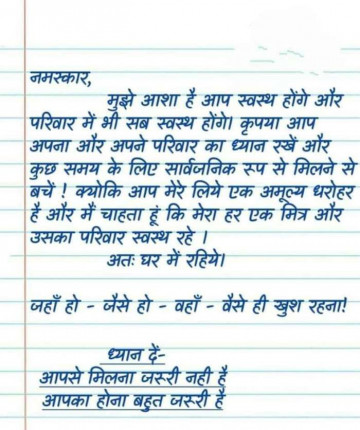 नमस्कार,
मुझे आशा है आप स्वस्थ होंगे और
परिवार में भी सब स्वस्थ होंगे। कृपया आप
अपना और अपने परिवार का ध्यान रखें और
कुछ समय के लिए सार्वजनिक रूप से मिलने से
बचें ! क्योकि आप मेरे लिये एक अमूल्य धरोहर
है और मैं चाहता हूं कि मेरा हर एक मित्र और
उसका परिवार स्वस्थ रहे ।
अतः घर में रहिये।
जहाँ हो - जैसे हो - वहाँ - वैसे ही खुश रहना!
ध्यान दें-
आपसे मिलना जरूरी नही है
आपका होना बहुत जरूरी है